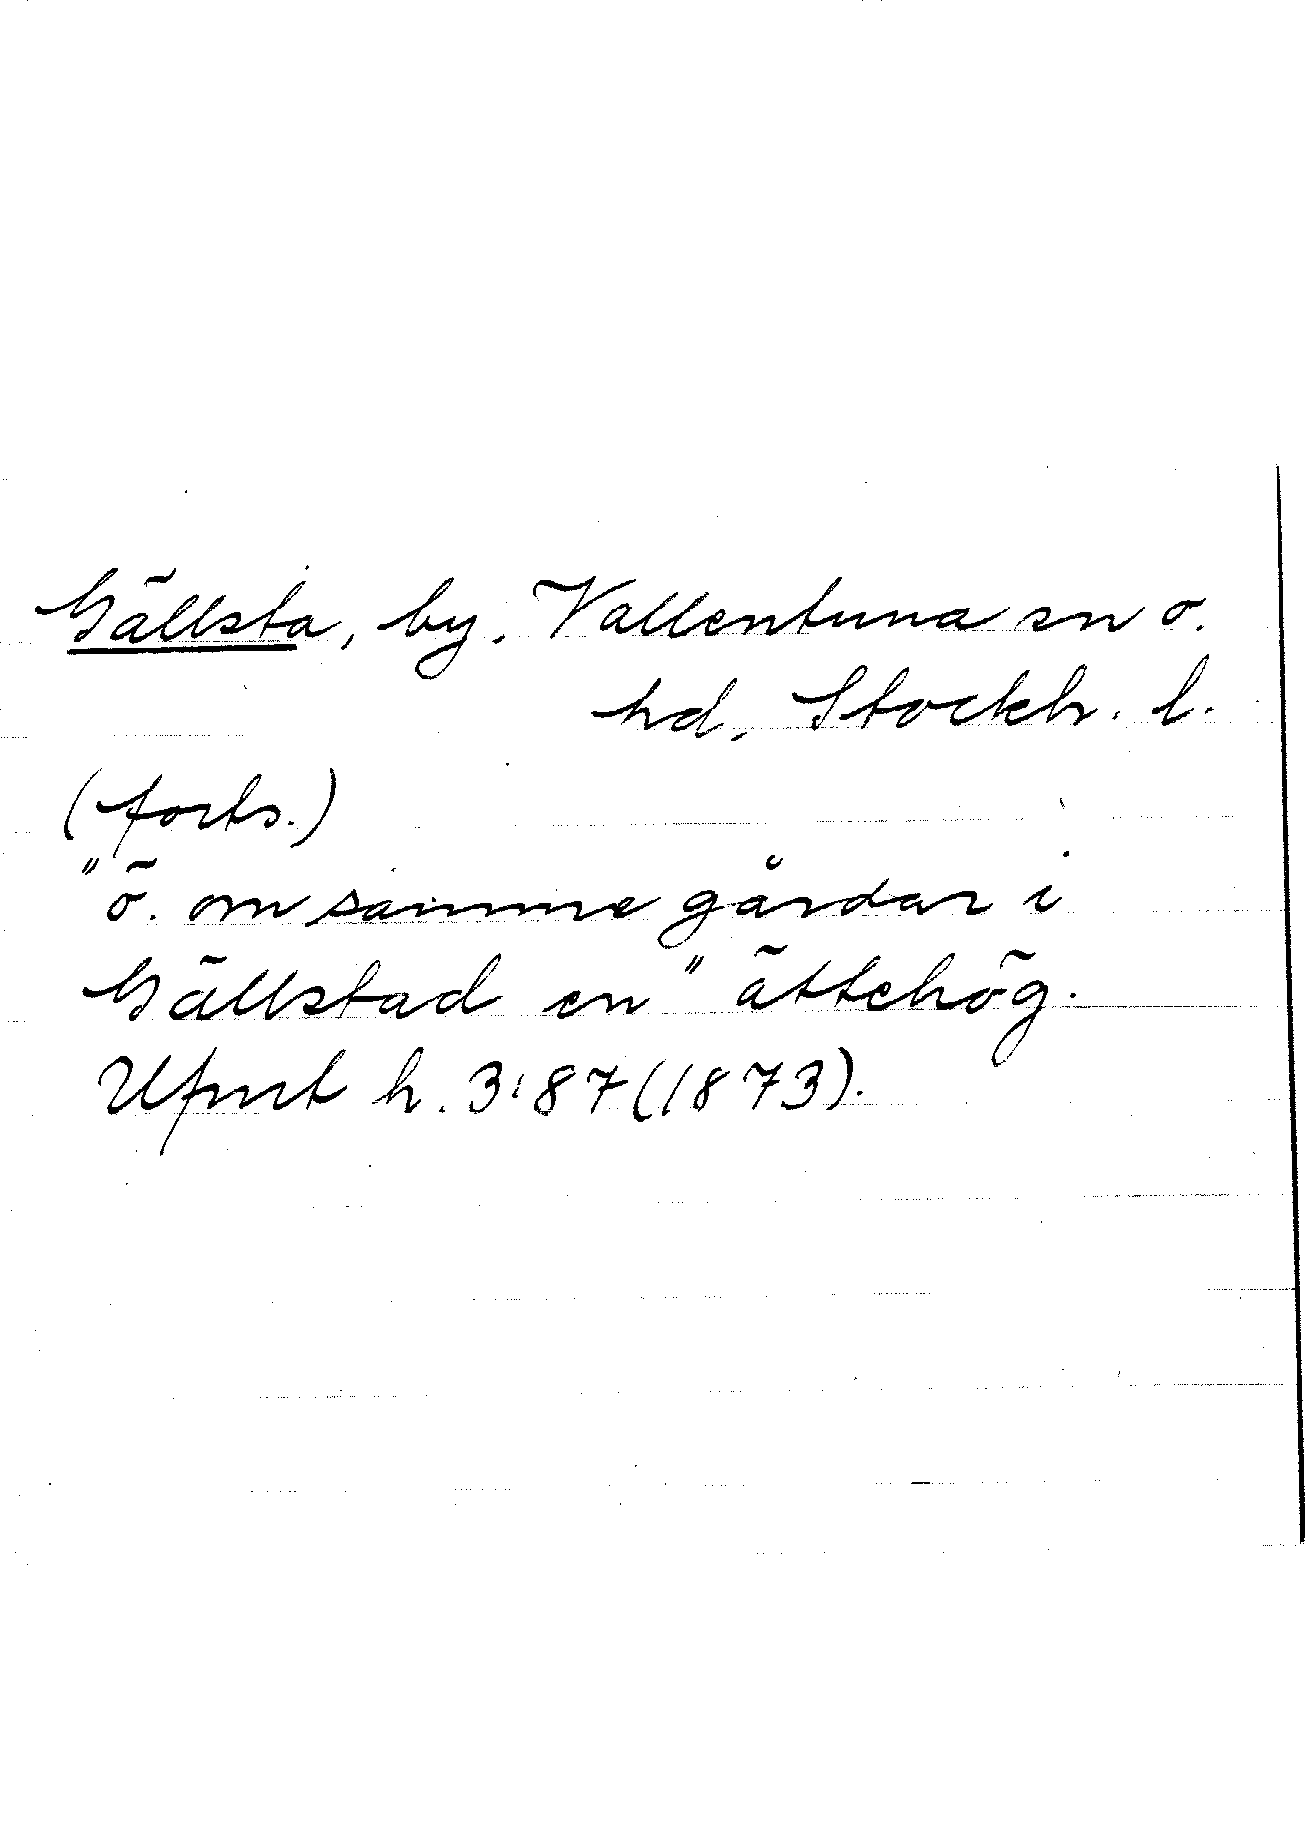 Gällsta, by. Vallentuna sn o.
hd, Stockh. l.
(forts.)
"ö. om samme gårdar i
Gällstad en" ättehög.
Ufmt h. 3:87 (1873).